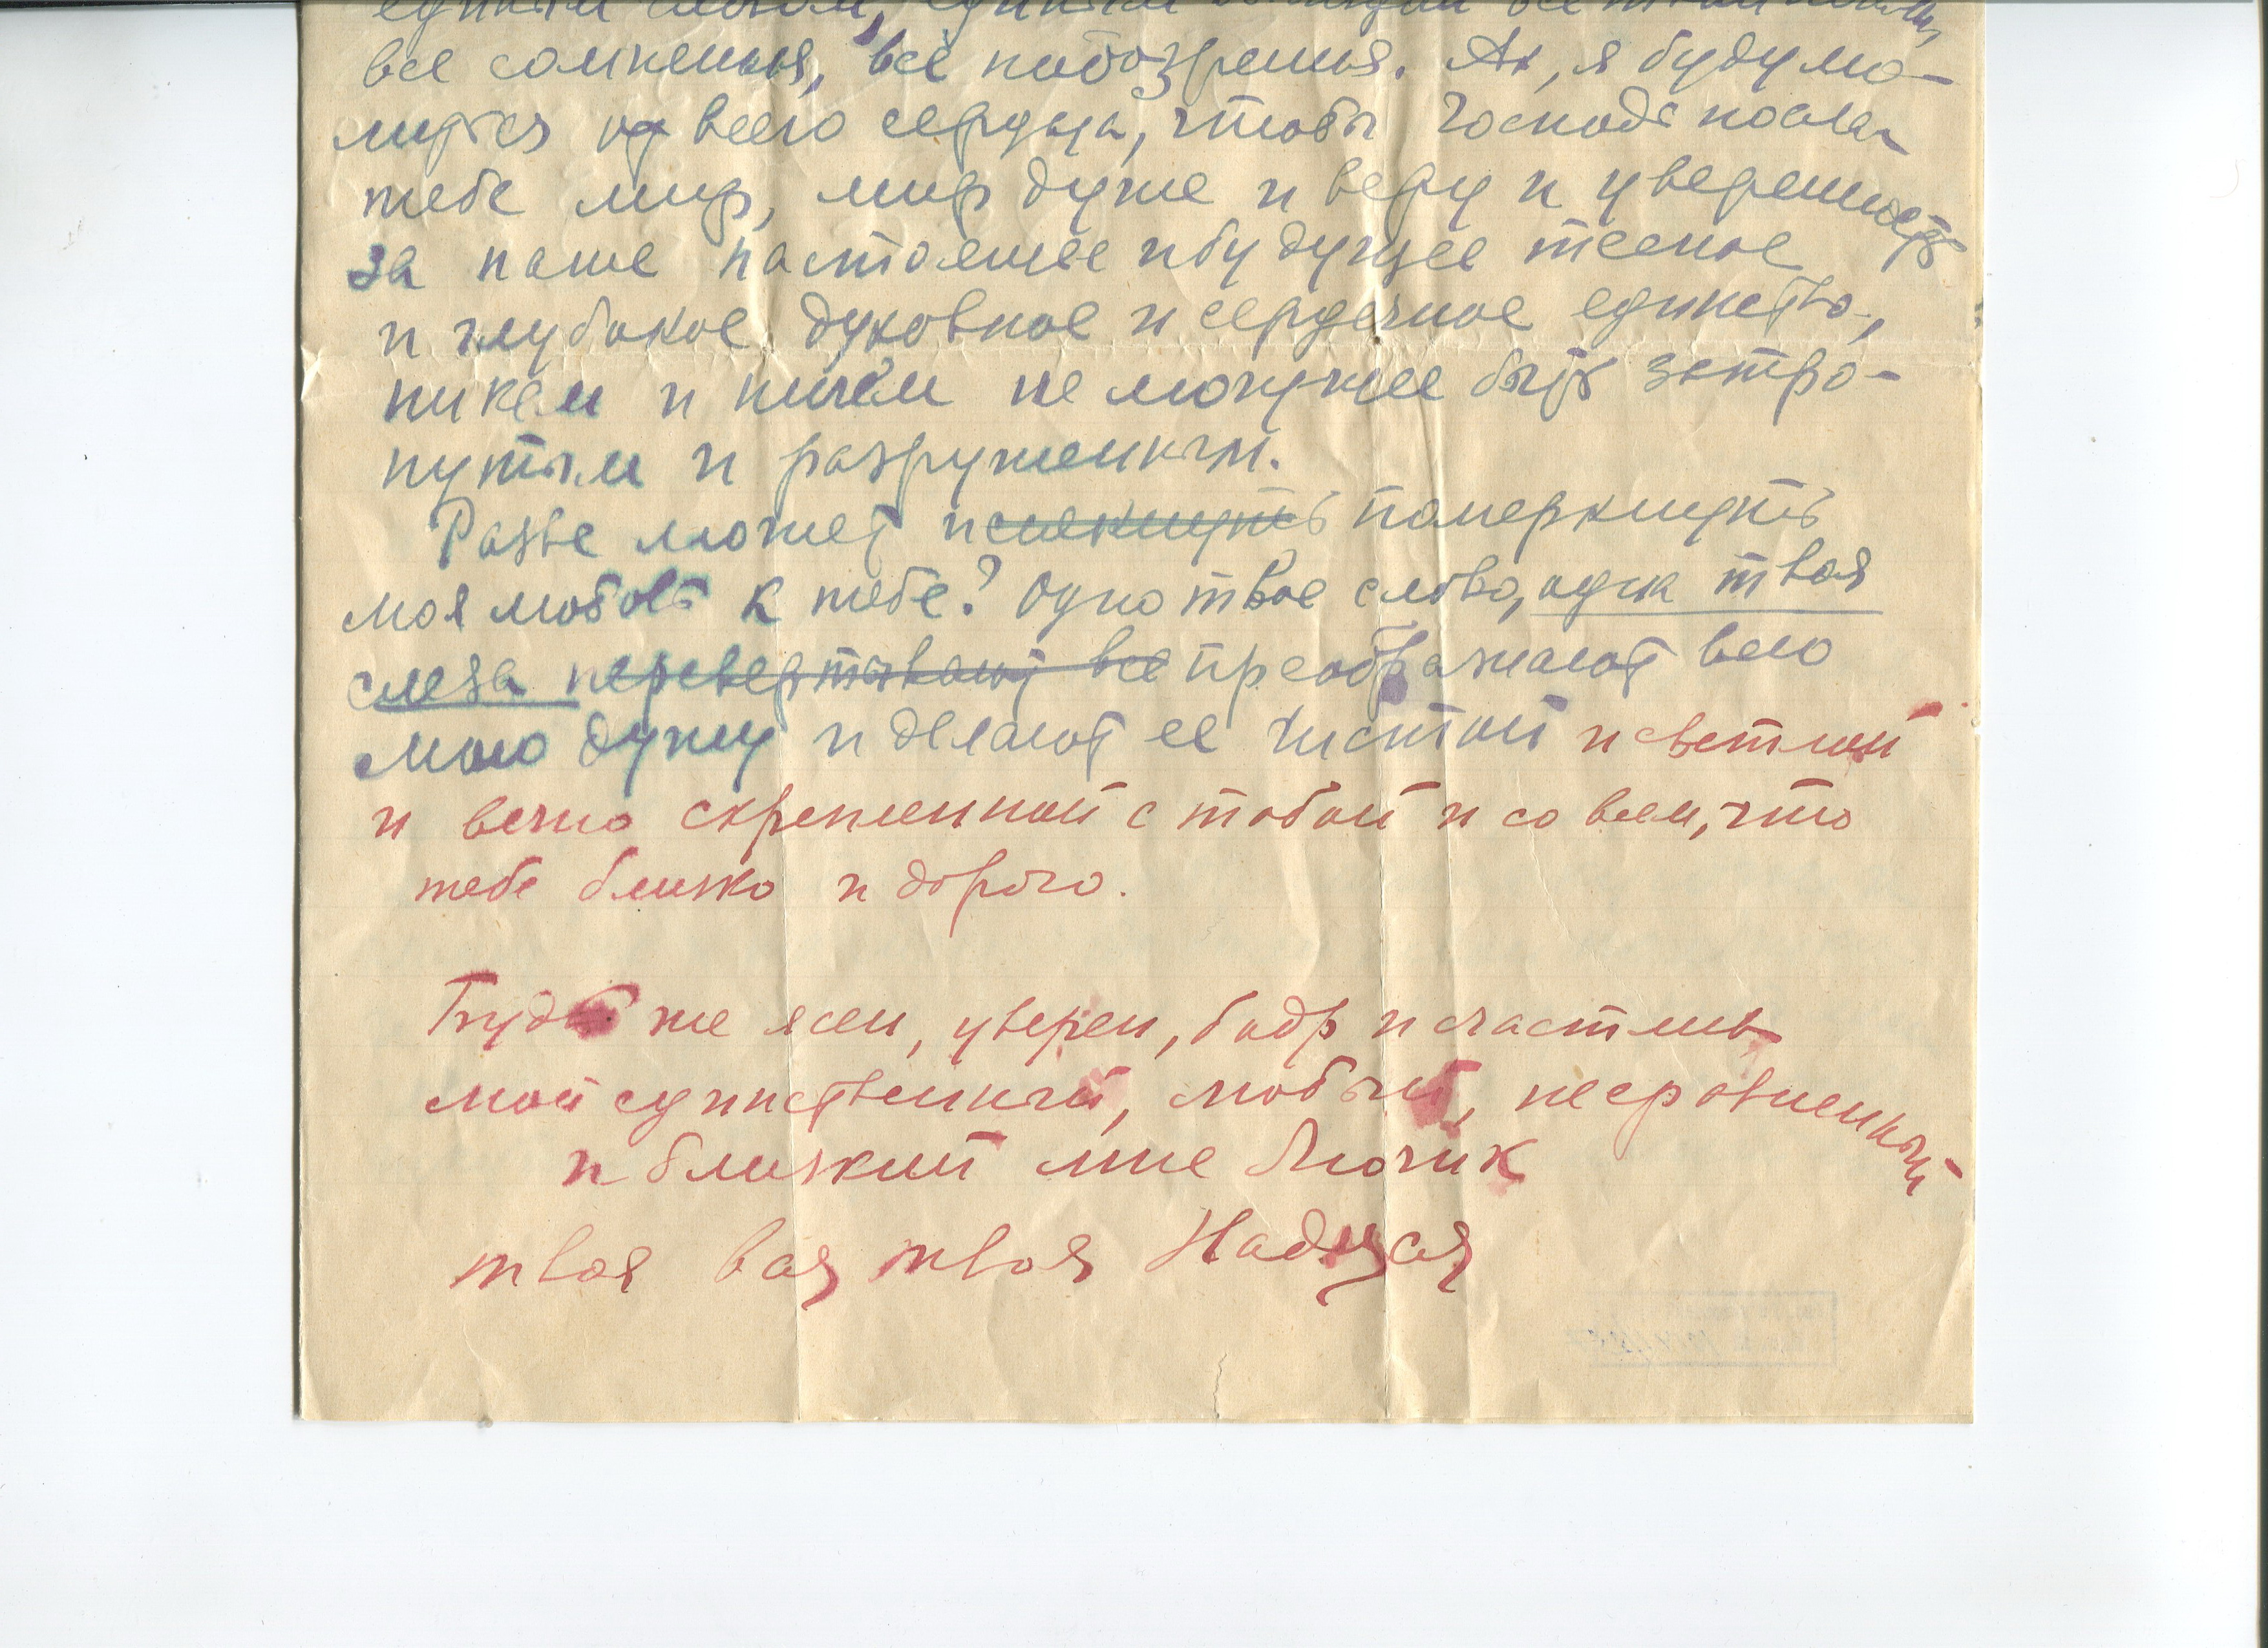 единым словом, единым
все сомненья, все подозренья. Ах, я буду мо-
литься от всего сердца, чтобы Господь послал
тебе мир, мир душе и веру и уверенность
за наше настоящее и будущее тесное
и глубокое духовное и сердечное единство,
никем и ничем не могущее быть затро-
нутым и разрушенным.
Разве может иссякнуть померкнуть
моя любовь к тебе? Одно твое слово, одна твоя
слеза перевертывают все преображают всю
мою душу и делают ее чистой и светлой
и вечно скрепленной с тобой и со всем, что
тебе близко и дорого.
Будь же ясен, уверен, бодр и счастлив
мой единственный, любый, несравненный
и близкий мне Люсик
твоя вся твоя Надюся